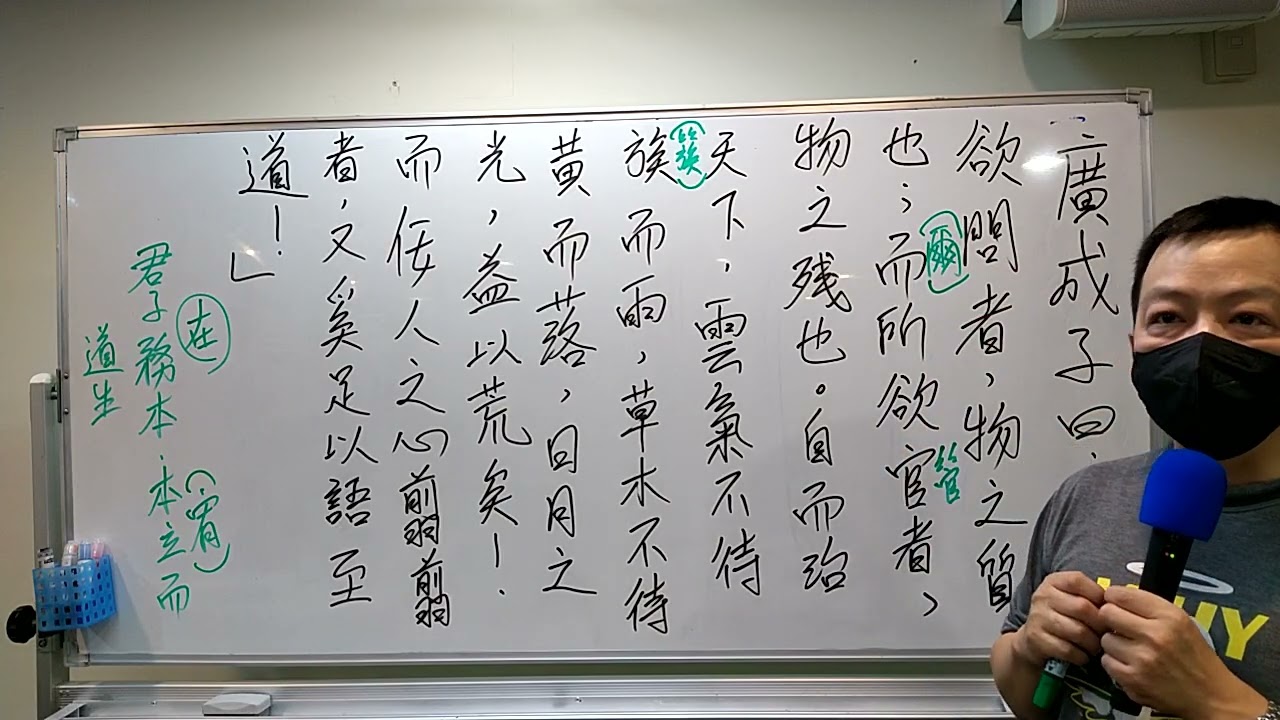 「廣成子曰:
欲問者,物之質
(爾)
管
也;而所欲官者,
物之残也。自而治
天下,雲氣不待
(簇)
族而雨,草木不待
黃而落,日月之
光,益以荒矣!
而佞人之心翦翦
者,又奚足以語至
道!」
(在)
(宥)
君子務本,本立而
道生